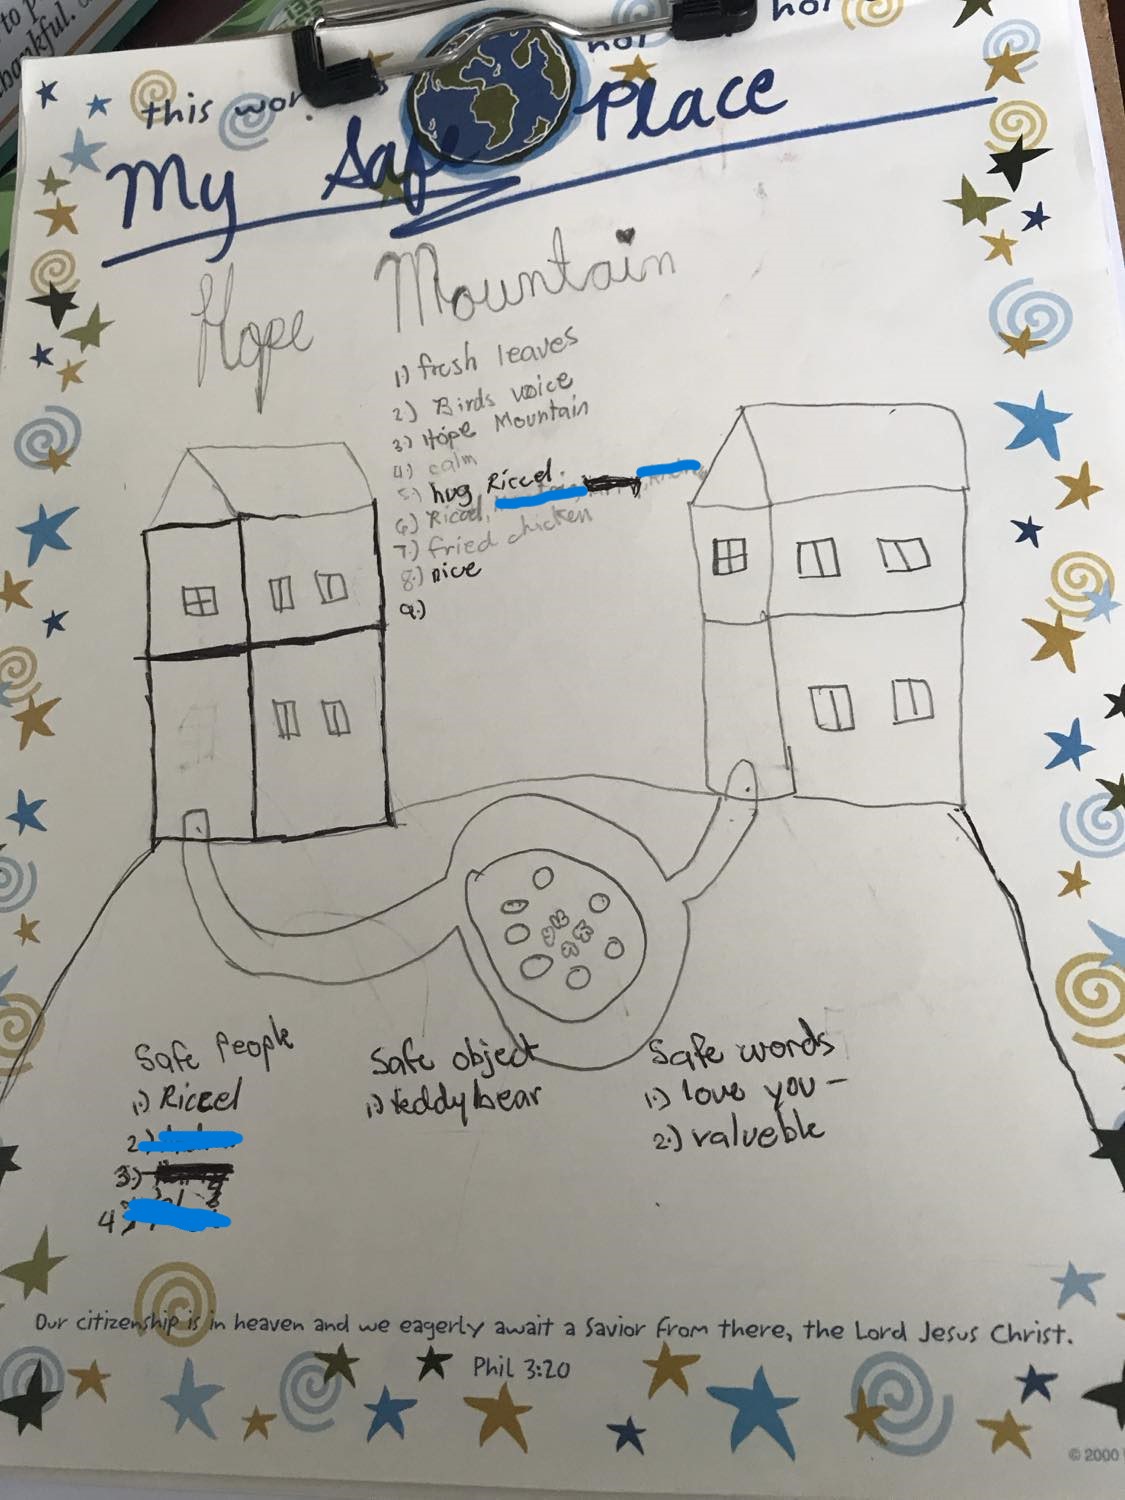 to p
bankful.
this wor
not
hol
My Safe Place
Hope Mountain
1.) fresh leaves
2.) Birds voice
3.) Hope Mountain
4.) calm
5.) hug Riccel.
6.) Riccel,
7.) fried chicken
8.) rice
9.)
Safe People
1.) Riccel
2.)
3.)
4
Safe object
1.) teddy bear
Safe words
1.) love you –
2.) valueble
Our citizenship is in heaven and we eagerly await a Savior from there, the Lord Jesus Christ.
Phil 3:20
© 2000